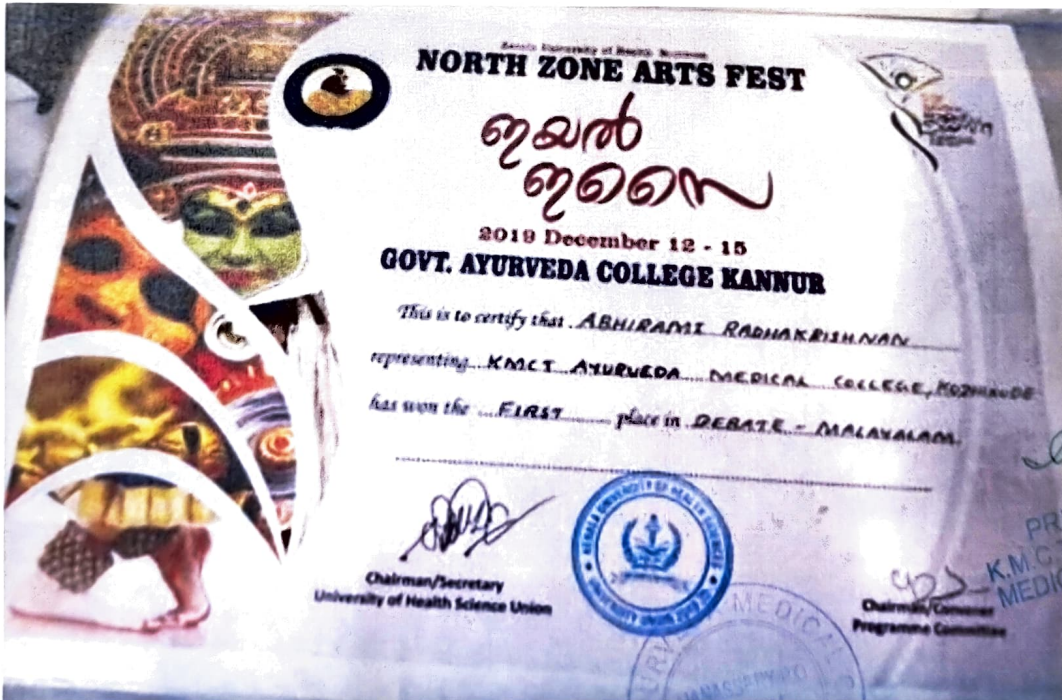 Kerala University of Health Sciences
NORTH ZONE ARTS FEST
ഇയൽ
ഇസൈ
2019 December 12 - 15
GOVT. AYURVEDA COLLEGE KANNUR
This is to certify that ABHIRAMI RADHAKRISHNAN
representing KMCT AYURVEDA MEDICAL COLLEGE, KOZHIKODE
has won the FIRST place in DEBATE - MALAYALAM.
Chairman/Secretary
University of Health Science Union
KERALA UNIVERSITY OF HEALTH SCIENCES
UNIVERSITY UNION
Chairman/Convener
Programme Committee
PR
K.M.C.
MEDI
MEDICAL